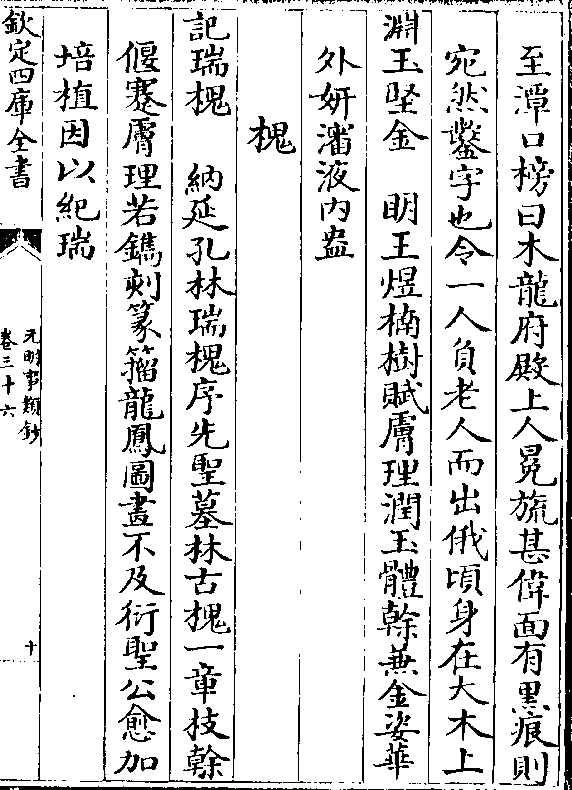 至潭口榜曰木龍府殿上人冕旒甚偉面有黑痕則
宛然鑿字也令一人負老人而出俄頃身在大木上
淵玉堅金　明王煜楠樹賦膚理潤玉體榦兼金姿華
外妍瀋液内盎
槐
記瑞槐　納延孔林瑞槐序先聖墓林古槐一章技榦
偃蹇膚理若鐫刻篆籀龍鳳圖畫不及衍聖公愈加
培植因以紀瑞
欽定四庫全書
元明事類鈔
卷三十六
十